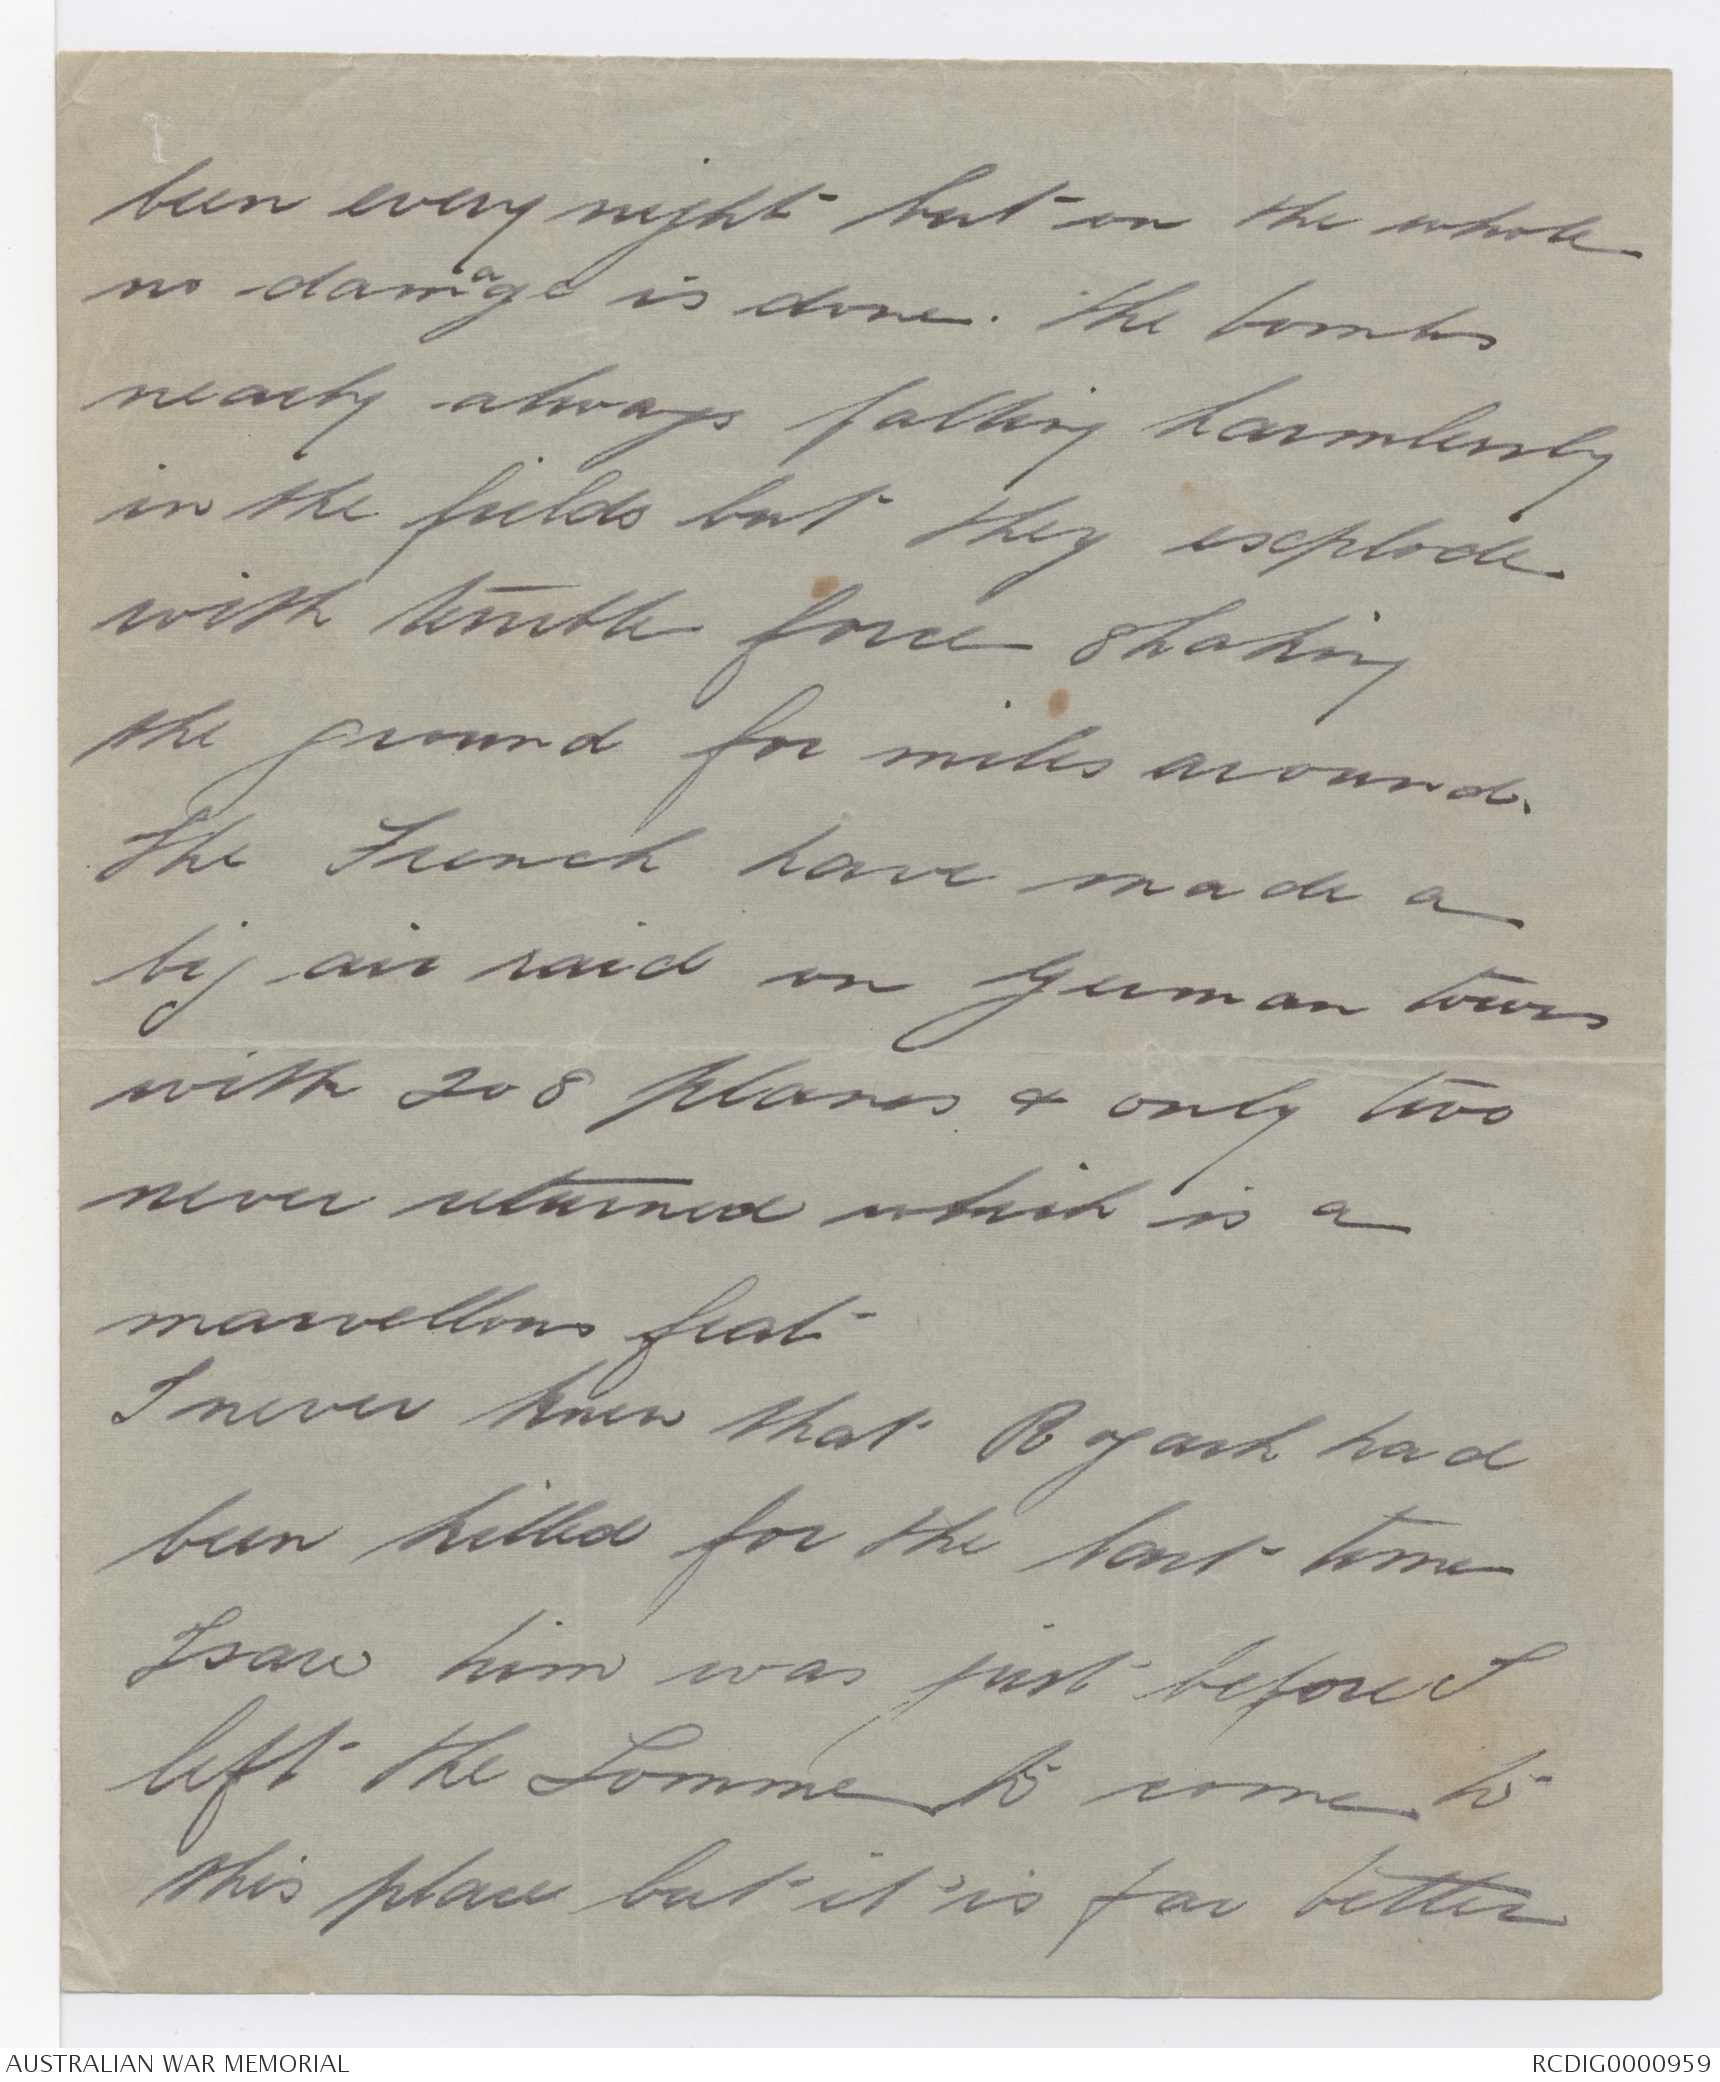 been every night but on the whole
no damage is done. The bombs
nearly always falling harmlessly
in the fields but they explode
with terrible force shaking
the ground for miles around.
The French have made a
big air raid on German towns
with 208 planes & only two
never returned which is a
marvellous feat
I never knew that had
been killed for the last time
I saw him was just before I
left the Somme to come to
this place but it is far better
AUSTRALIAN WAR MEMORIAL
RCDIG0000959